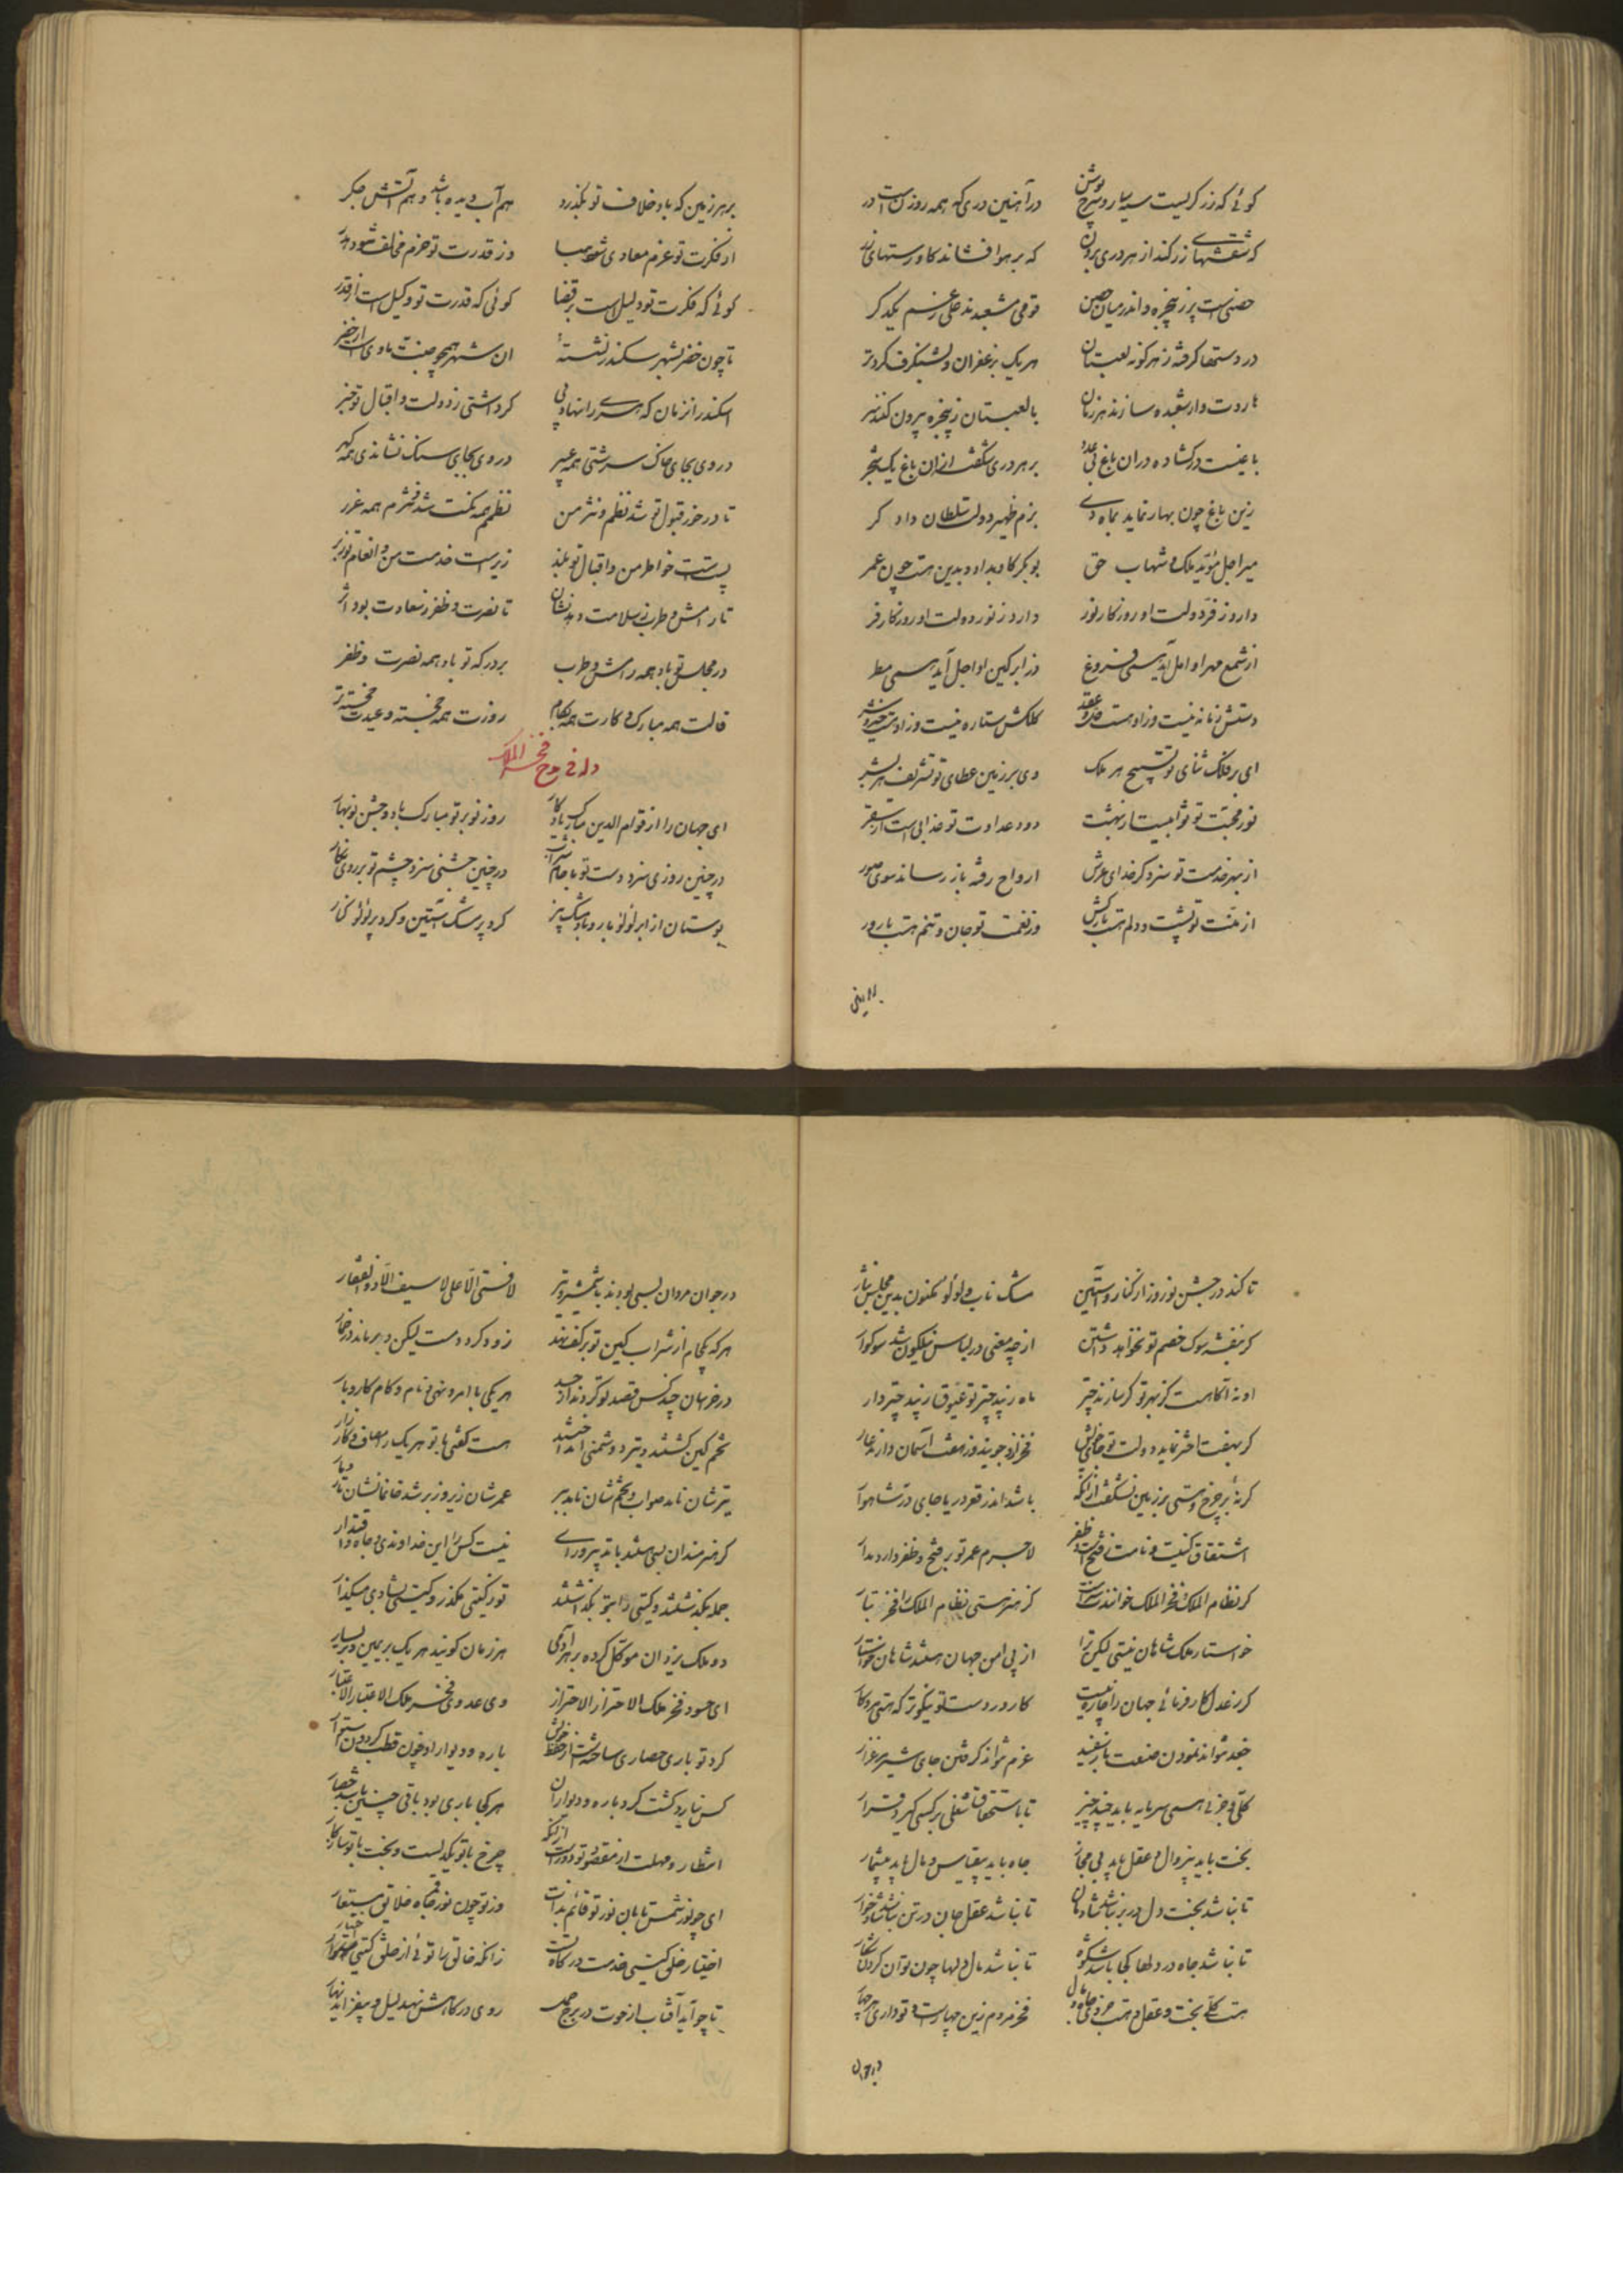 گوئی که زرگریست سیه‌کار و سرخ پوش در آهنین دری که همه روز است در
که برهوا فشاند گاورسهای زر
حصنی است پر ز پنجره و اندر میان حصن قومی مشعبدند علی رغم یکدگر
در دستها گرفته ز هر گونه لعبتان هر یک بزعفران و بشنگرف کرده تر
هاروت وار شعبده سازند هر زمان با لعبتان ز پنجره بیرون کنند سر
باغیست در گشاده در ان باغ بی عدد بر هر دری شکفته ازان باغ یک شجر
زین باغ چون بهار نماید بماه دی بزم ظهیر دولت سلطان دادگر
میر اجل مؤید ملک و شهاب حق بوبکر کاو بداد و بدین هست چون عمر
دارد ز فر دولت او روزگار نور دارد ز نور دولت او روزگار فر
از شمع مهر او امل آید همی فروغ وز ابر کین او اجل آید همی مطر
دستش زمانه نیست وزاو هست حل و عقد کلکش ستاره نیست وزاو هست خیر و شر
ای بر فلک ثنای تو تسبیح هر ملک وی بر زمین عطای تو تشریف هر بشر
نور محبت تو ثوابیست از بهشت دود عداوت تو عذابی است از سقر
از بهر خدمت تو سزد گر خدای عرش ارواح رفته باز رساند سوی صور
از منت تو پشت و دلم هست بارکش وز نعمت تو جان و تنم هست بارور
بر هر زمین که باد خلاف تو بگذرد هم آب دیده باشد و هم آتش جگر
از فکرت تو عزم معادی شود هبا وز قدرت تو حزم مخالف شود هدر
گوئی که فکرت تو دلیل است بر قضا گوئی که قدرت تو وکیل است از قدر
تا چون خضر بشهر سکندر نشسته‌ٔ ان شهر همچو جنت ماوی است از خضر
اسکندر انزمان که همی را نهاد پی گر داشتی ز دولت و اقبال تو خبر
در وی بجای خاک سرشتی همه عبیر در وی بجای سنگ نشاندی همه گهر
تا در خور قبول تو شد نظم و نثر من نظمم همه نکت شد و نثرم همه غرر
پست است خواطر من و اقبال تو بلند زیر است خدمت من و انعام تو زبر
تا رامش و طرب ز سلامت دهد نشان تا نصرت و ظفر ز سعادت بود اثر
در مجلس تو باد همه رامش و طرب بر درگه تو باد همه نصرت و ظفر
فالت همه مبارک و کارت همه بکام روزت همه خجسته و عیدت خجسته تر
وله فی مدح فخر الملک
ای جهان را از قوام الدین مبارک یادگار روز نو بر تو مبارک باد و جشن نوبهار
در چنین روزی سزد دست تو با جام شراب در چنین جشنی سزد چشم تو بر روی نگار
بوستان از ابر لؤلؤ بار و باد مشک بیز کرد پر مشک آستین و کرد پر لؤلؤ کنار
تا کند در جشن نوروز از کنار و آستین مشک ناب و لؤلؤ مکنون بدین مجلس نثار
گر بنفشه سوک خصم تو نخواهد داشتن از چه معنی در لباس نیلگون شد سوکوار
او نه آگاهست کز بهر تو گر سازند چتر ماه زیبد چتر تو عیوق زیبد چتردار
گر بهفت اختر نماید دولت تو جاه خویش فخر ازو جویند وز هفت آسمان دارند عار
گر نهٔ بر چرخ و هستی بر زمین نشگفت ازانکه باشد اندر قعر دریا جای در شاهوار
اشتقاق کنیت و نامت ز فتح است و ظفر لاجرم عمر تو بر فتح و ظفر دارد مدار
گر نظام الملک فخر الملک خواندت رواست کز هنر هستی نظام الملک را فخر تبار
خواستار ملک شاهان نیستی لیکن ترا از پی امن جهان هستند شاهان خواستار
گر ز عدل کارفرمائی جهان را چاره نیست کار در دست تو نیکوتر که هستی مرد کار
جغد نتواند نمودن صنعت باز سفید غرم نتواند گرفتن جای شیر مرغزار
کلی و جزئی همی سرمایه باید چند چیز تا باستحقاق شغلی بر کسی گیرد قرار
بخت باید بیزوال و عقل باید بی مجاز جاه باید بیقیاس و مال باید بیشمار
تا نباشد بخت دل در بر نباشد شادمان تا نباشد عقل جان در تن نباشد شادخوار
تا نباشد جاه در دلها کجا باشد شکوه تا نباشد مال دلها چون توان کردن شکار
هست کلی بخت و عقل و هست جزوی جاه و مال فخر مردم زین چهار است و تو داری هر چهار
در جوان مردان بسی بودند با شمشیر تیز لافتی الا علی لا سیف الا ذوالفقار
هر که یک جام از شراب کین تو بر کف نهد زود گردد مست لیکن دیر ماند در خمار
در خراسان چند کس قصد تو کردند از حسد هر یکی با امر و نهی و نام و کام و کار و بار
تخم کین کشتند و تیر دشمنی انداختند هست گفتی با تو هر یک را مصاف و کارزار
تیرشان نامد صواب و تخم شان نامد ببر عمرشان زیر و زبر شد خانمانشان تار و مار
گر هنرمندان بسی هستند با تدبیر و رای نیست کس را این خداوندی و جاه و اقتدار
جمله بگذشتند و گیتی را بتو بگذاشتند تو ز گیتی مگذر و گیتی بشادی میگذار
دو ملک یزدان موکل کرده بر هر آدمی هر زمان گویند هر یک بر یمین و بر یسار
ای حسود فخر ملک الاحتراز الاحتراز وی عدوی فخر ملک الاعتبار الاعتبار
گرد تو باری حصاری ساخته است از حفظ خویش باره و دیوار او چون قطب گردون استوار
کس نیارد گشت گرد باره و دیوار ان هر کجا باری بود باقی چنین باشد حصار
انتظار و مهلت از مقصود تو دور است ازانکه چرخ با تو یکدلست و بخت با تو سازگار
ای چو نور شمس تابان نور تو قائم بذات وز تو چون نور قمر جاه خلایق مستعار
اختیار خلق گیتی خدمت درگاه تست زانکه خالق را توئی از خلق گیتی اختیار
تا چو آید آفتاب از حوت در برج حمل روی در کاهش نهد لیل و بیفزاید نهار